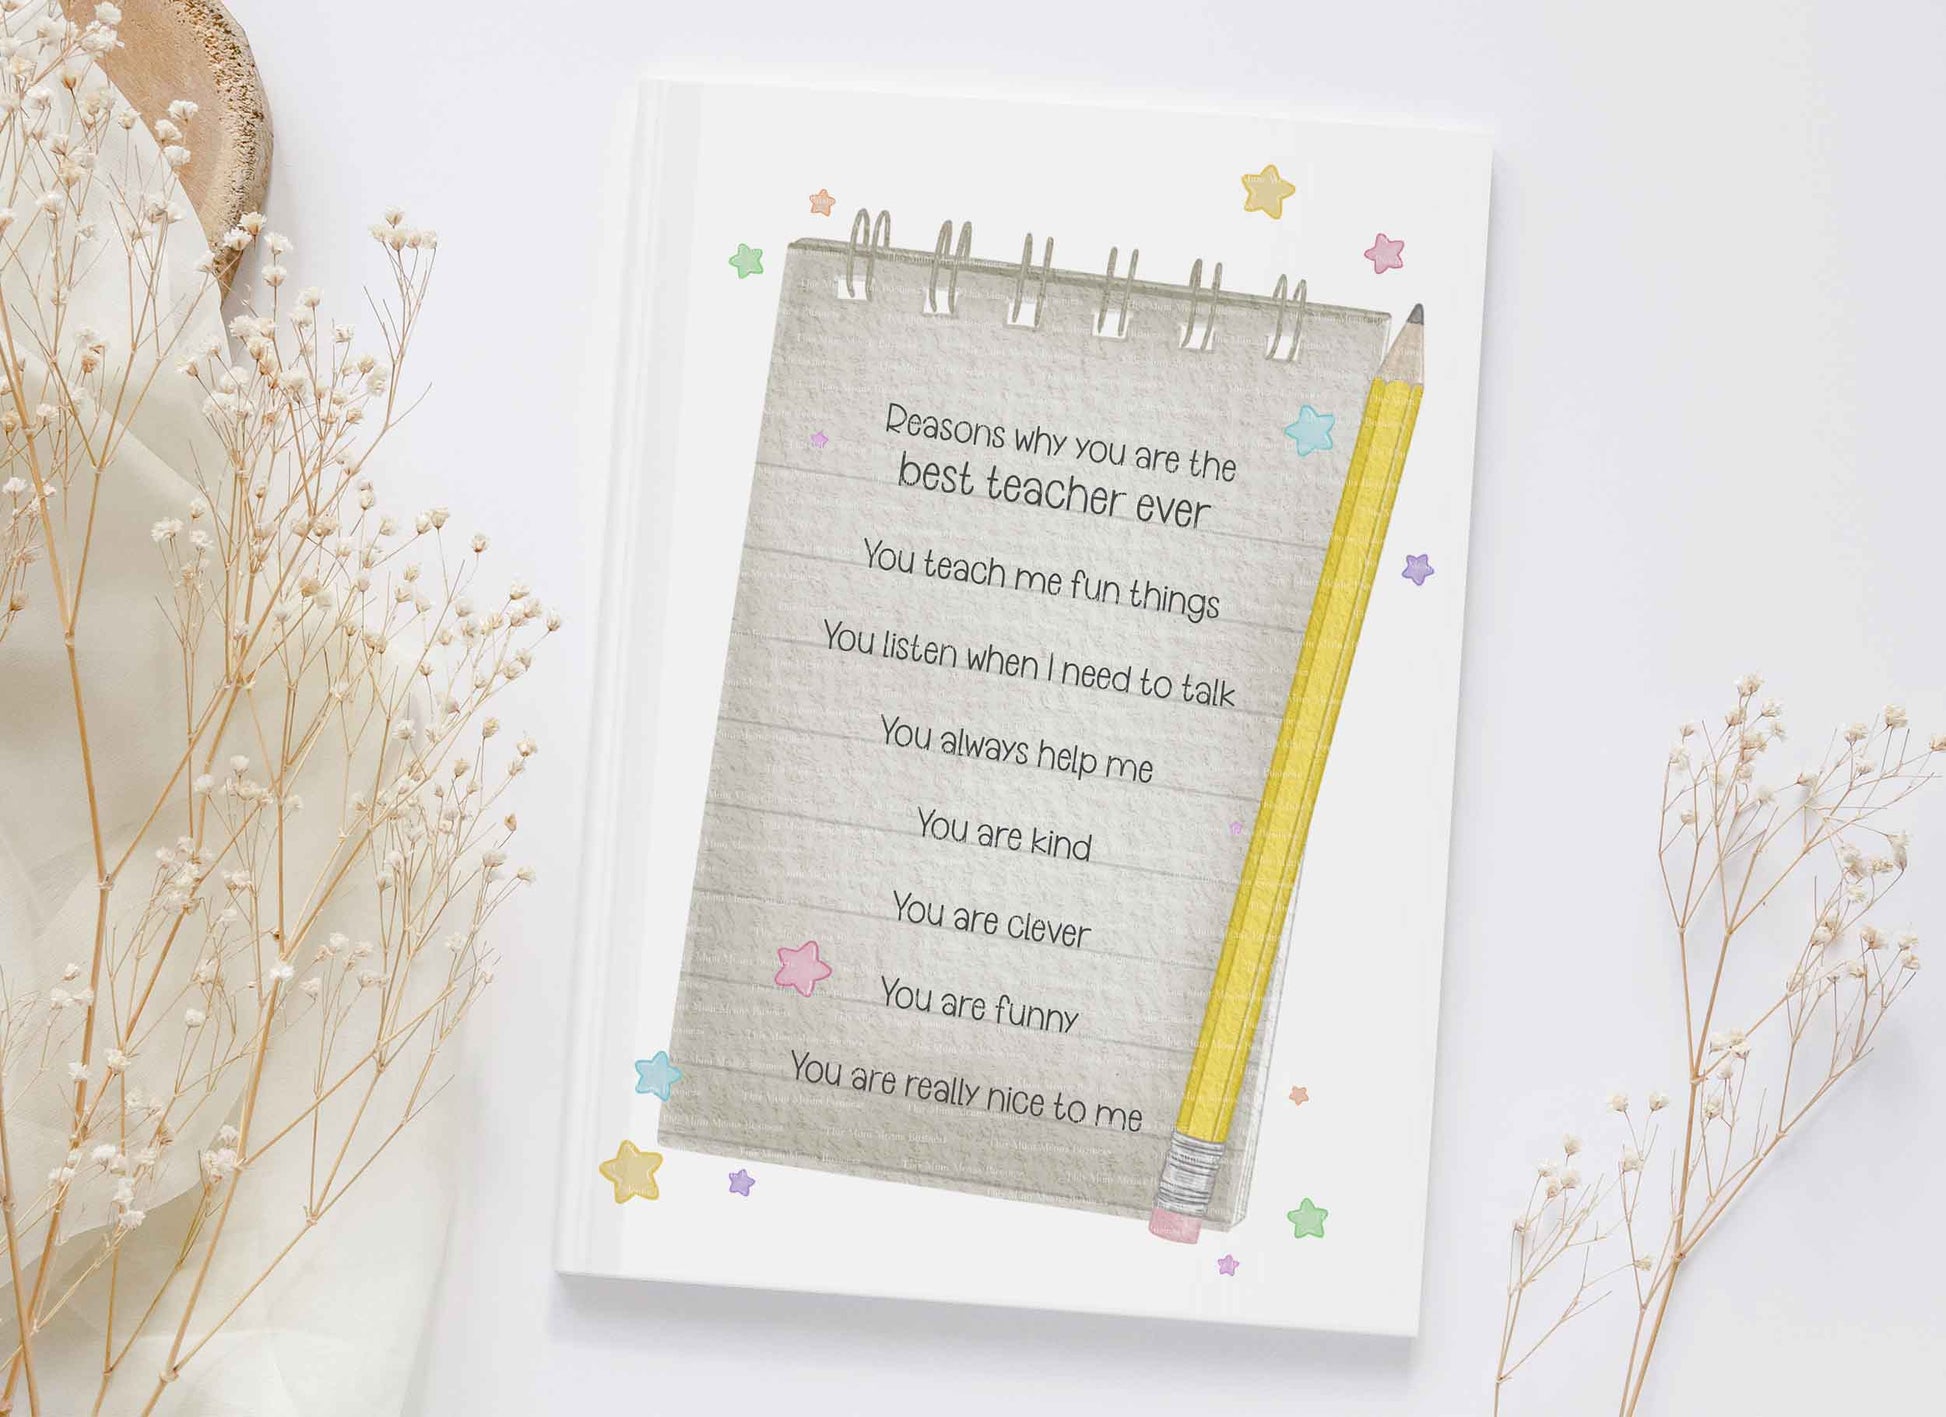 Reasons why you are the
best teacher ever
You teach me fun things
You listen when I need to talk
You always help me
You are kind
You are clever
You are funny
You are really nice to me
This Mum Means Business